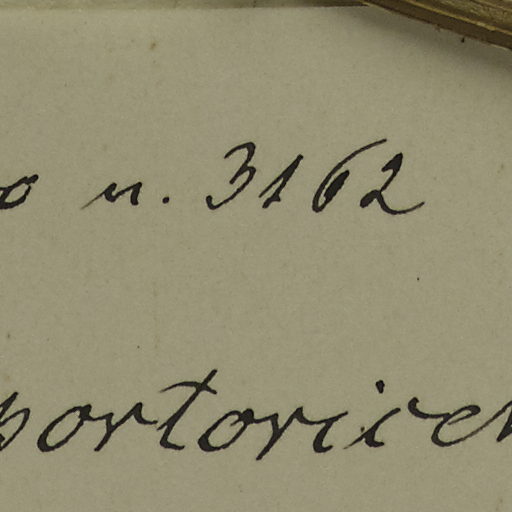 o n. 3162
portoricen